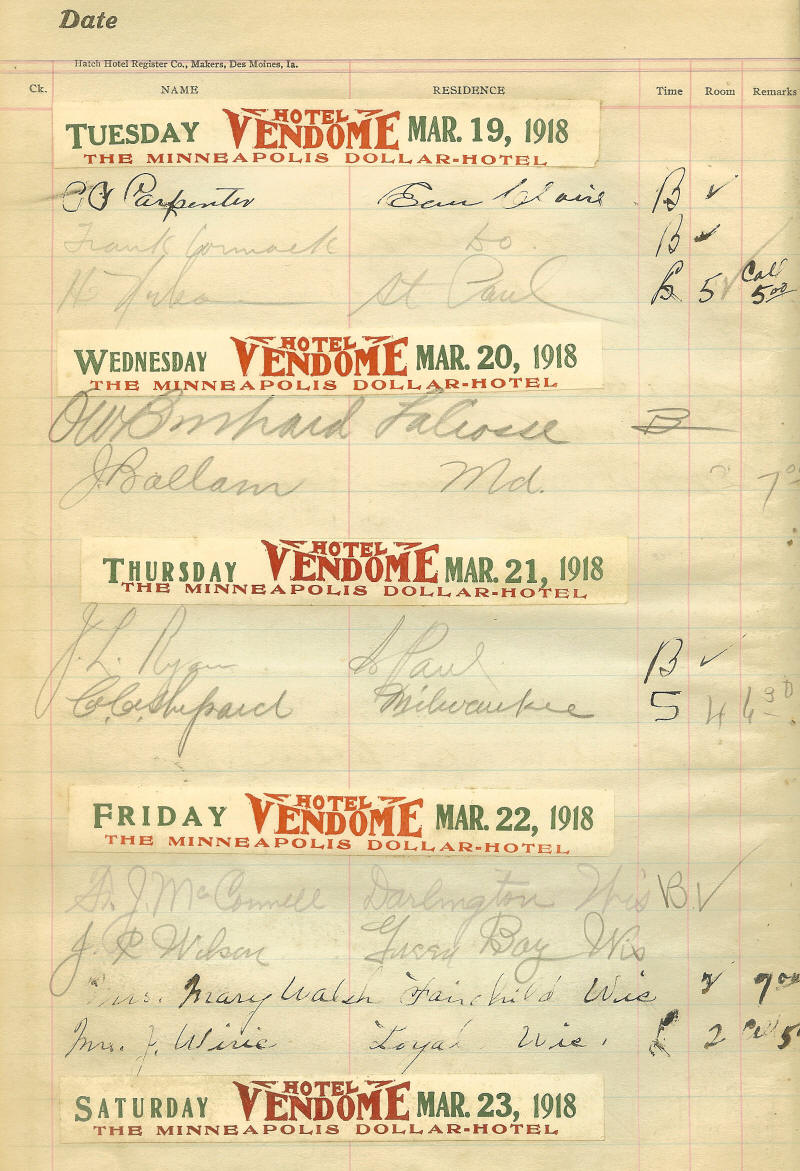 Date
Hatch Hotel Register Co., Makers, Des Moines, Ia.
Ck. NAME RESIDENCE Time Room Remarks
TUESDAY HOTEL VENDOME MAR. 19, 1918
THE MINNEAPOLIS DOLLAR-HOTEL
Carpenter Eau Claire B ✓
Frank Cormack Do. B ✓
H St Paul 5 ✓ Call 5 00
WEDNESDAY HOTEL VENDOME MAR. 20, 1918
THE MINNEAPOLIS DOLLAR-HOTEL
LaCrosse B
J. Ballam Md. 7 00
THURSDAY HOTEL VENDOME MAR. 21, 1918
THE MINNEAPOLIS DOLLAR-HOTEL
J. L. Ryan St Paul B ✓
C. C. Shepard Milwaukee 5 4 6 30
FRIDAY HOTEL VENDOME MAR. 22, 1918
THE MINNEAPOLIS DOLLAR-HOTEL
J. McConnell Darlington Wis B ✓
J. R Wilson Green Bay Wis
Mrs. Mary Walsh Fairchild Wis 7 00
Mrs. J. Loyal Wis. 2 Call
SATURDAY HOTEL VENDOME MAR. 23, 1918
THE MINNEAPOLIS DOLLAR-HOTEL